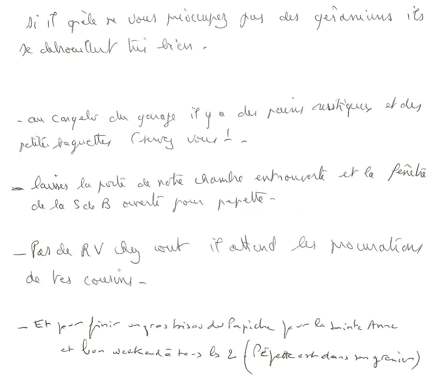 si il gèle ne vous préoccupez pas des géraniums ils
se débrouillent très bien.
- au congelo du garage il y a des pains rustiques et des
petites baguettes (servez vous ! -
- laissez la porte de notre chambre entrouverte et la fenêtre
de la SdeB ouverte pour papette -
- Pas de RV chez il attend les procurations
de tes cousins -
- Et pour finir un gros bisou du Papiche pour la Sainte Anne
et bon weekend à tous les 2 (l'Epette est dans son grenier)